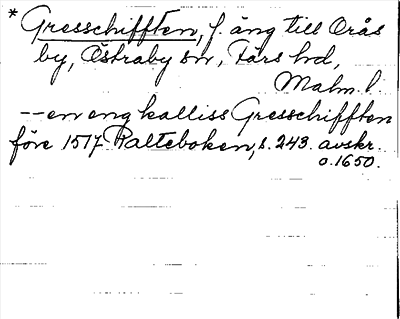 * Gresschifften, f. äng till Orås
by, Östraby sn, Färs hd,
Malm. l.
-- en eng kalliss Gresschifften
före 1517 Ralteboken, s. 243. avskr.
o. 1650.